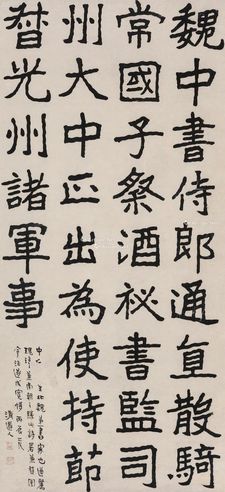 魏中書侍郎通直散騎
常國子祭酒祕書監司
州大中正出為使持節
督光州諸軍事
清道人